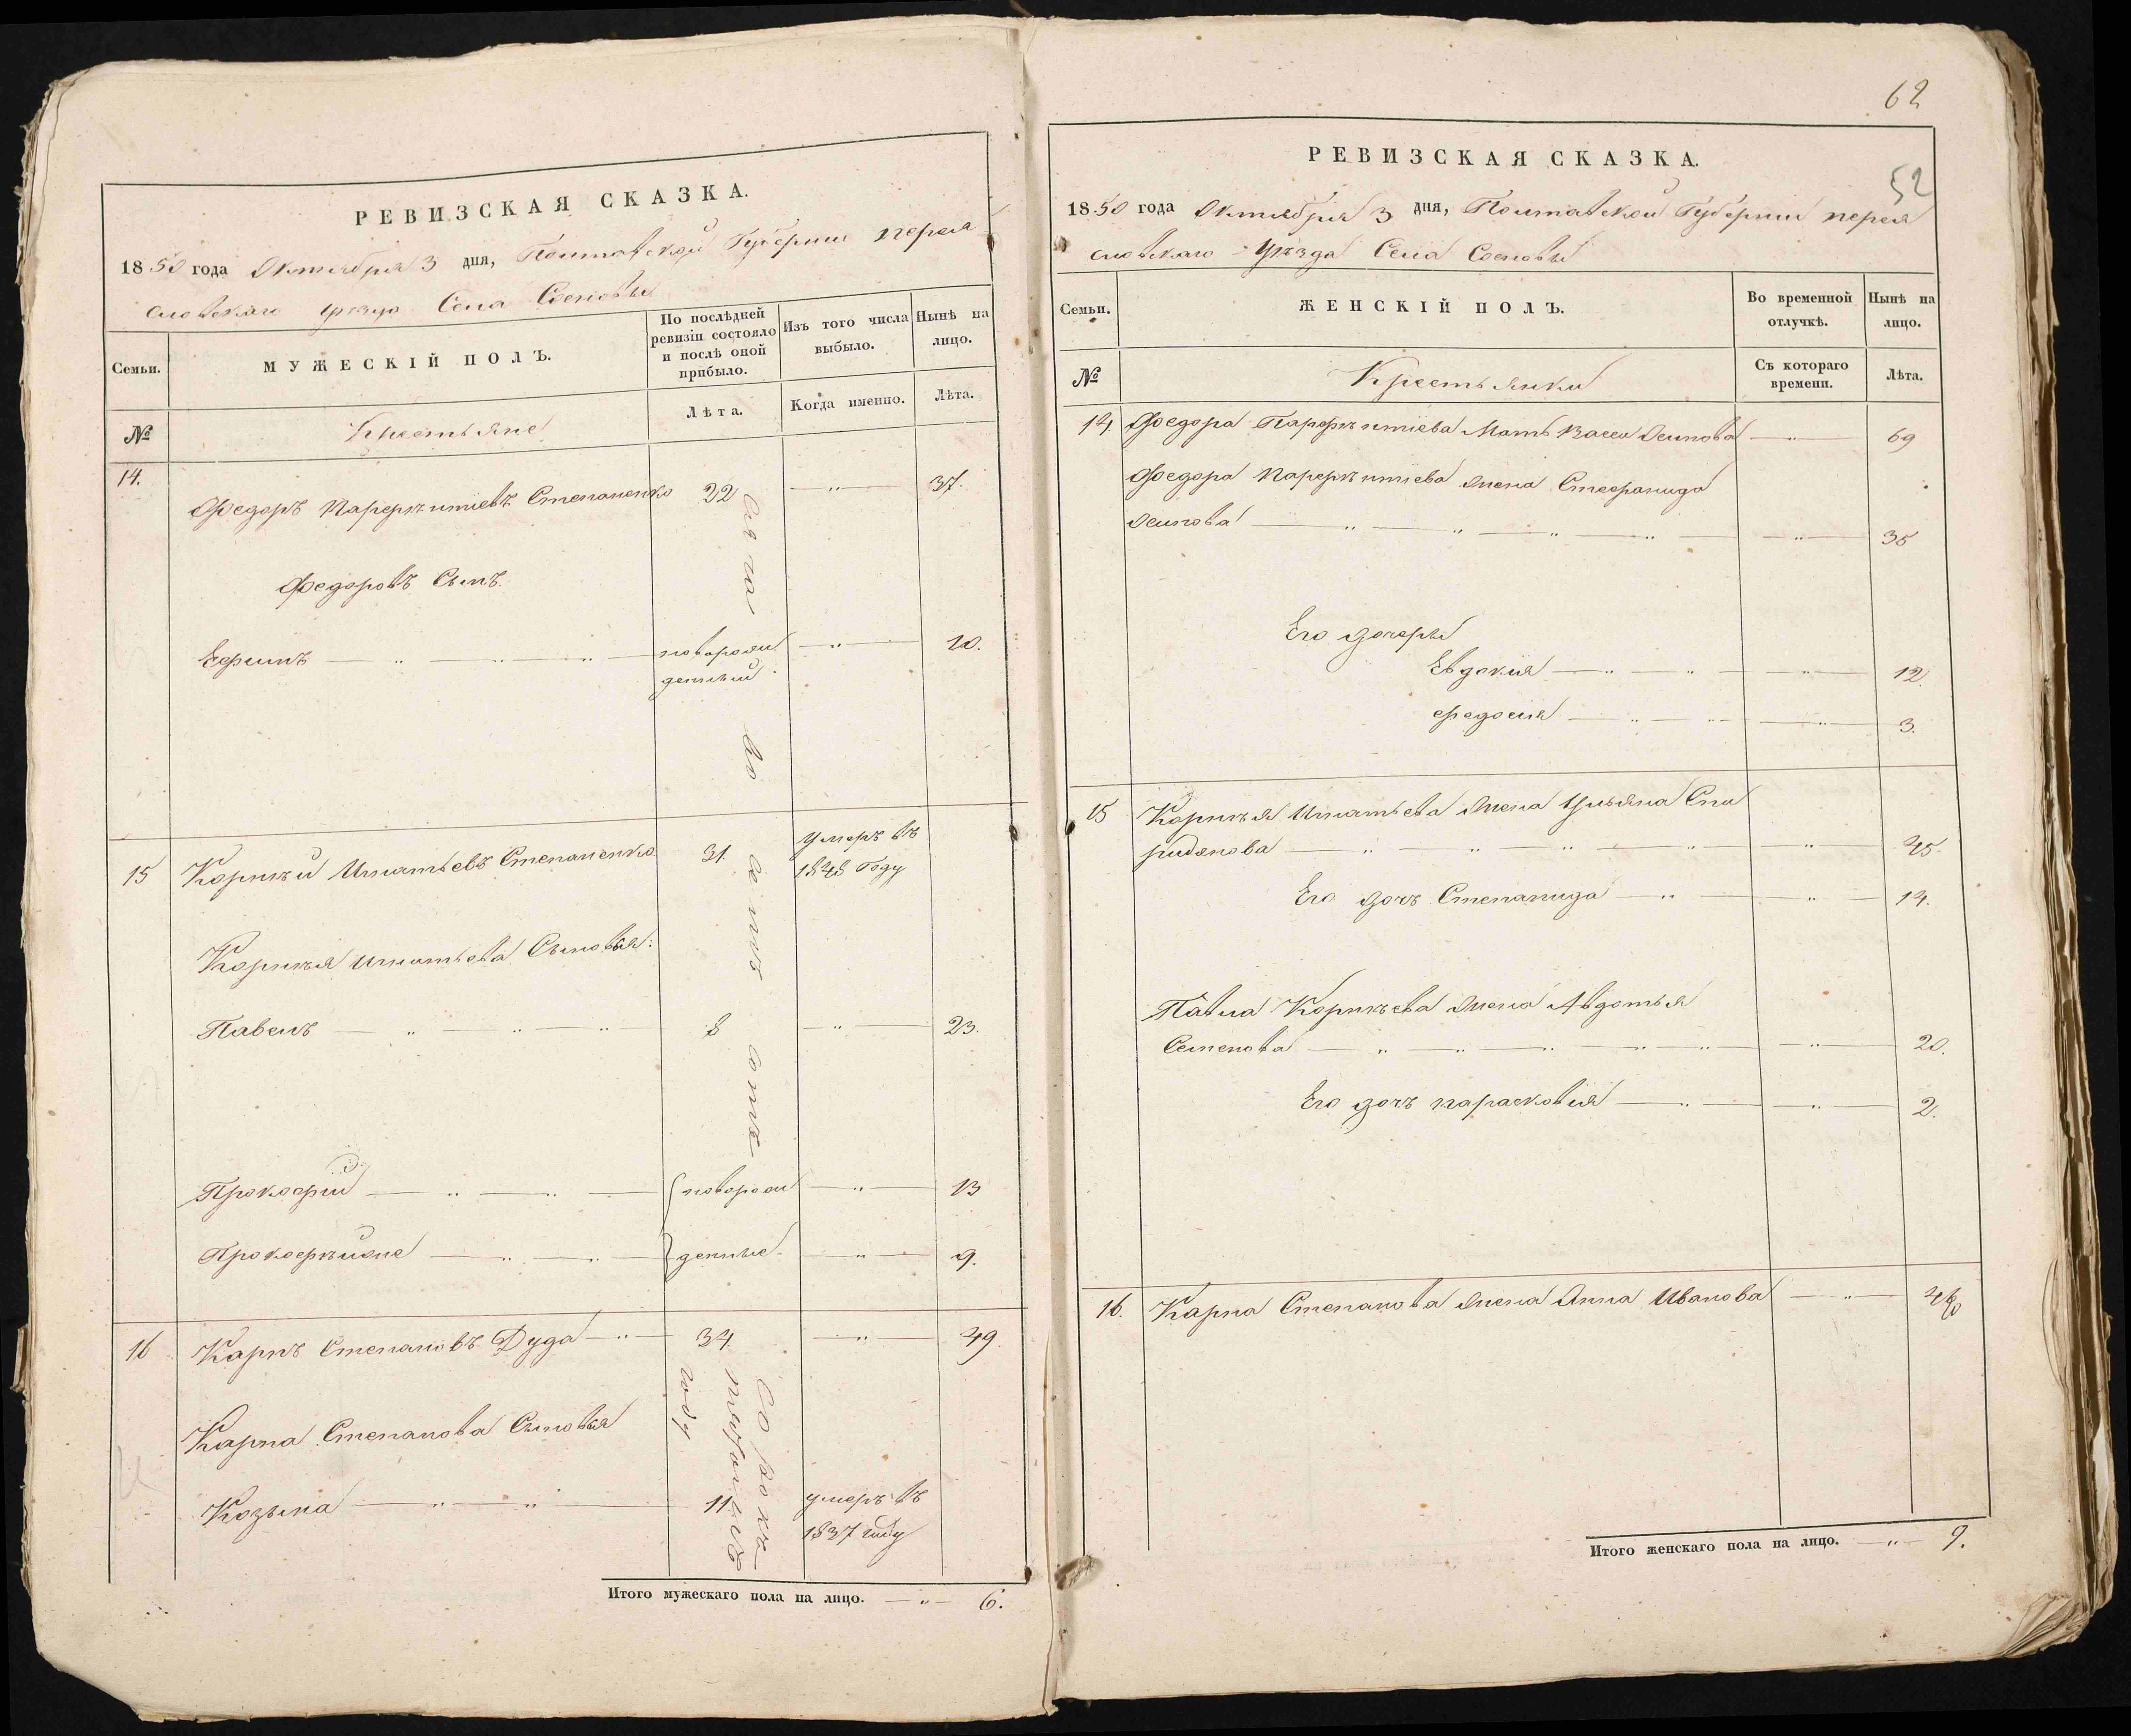 РЕВИЗСКАЯ СКАЗКА.
1850 года Октября 3 дня, Полтавской Губернии перея
славскаго уезда Села Сосновы
Семьи.
МУЖЕСКІЙ ПОЛЪ.
По послѣдней ревизіи состояло и послѣ оной прибыло.
Изъ того числа выбыло.
Нынѣ на лицо.
№
Крестьяне
Лѣта.
Когда именно.
Лѣта.
14.
Федоръ Парфентиевъ Степаненко 22 — „ — 37.
Федоровъ Сынъ.
Ефимъ — „ — „ — „ — новорож
денный — „ — 10.
15 Корнѣй Игнатьевъ Степаненко 31. умеръ въ
1848 Году
Корнѣя игнатьева Сыновья:
Павелъ — „ — „ — „ 8 — „ — 23.
Прокофій — „ — „ — новорож — „ — 13
Прокофѣй — „ — „ денные — „ — 9.
16 Карпъ Степановъ Дуда — „ — 34. — „ — 49.
Карпа Степанова Сыновья
Козьма — „ — „ — 11. умеръ въ
1837 году
Итого мужескаго пола на лицо. — „ — 6.
62
52
РЕВИЗСКАЯ СКАЗКА.
1850 года Октября 3 дня, Полтавской Губернии перея
славскаго Уѣзда Села Сосновы
Семьи.
ЖЕНСКІЙ ПОЛЪ.
Во временной отлучкѣ.
Нынѣ на лицо.
№
Крестьянки
Съ котораго времени.
Лѣта.
14 Федора Парфентиева Мать Васса Осипова — „ — 69
Федора Парфентиева жена Стефанида
Осипова — „ — „ — „ — „ — „ — 35
Его дочери
Евдокия — „ — „ — „ — 12.
федосия — „ — „ — „ — 3.
15 Корнѣя Игнатьева жена Ульяна Спи
ридонова — „ — „ — „ — „ — „ — 45.
Его дочь Степанида — „ — „ — 14.
Павла Корнѣева жена Авдотья
Семенова — „ — „ — „ — „ — „ — „ — 20.
Его дочь парасковия — „ — „ — 2.
16. Карпа Степанова жена Анна Иванова — „ — 48
Итого женскаго пола на лицо. — „ — 9.